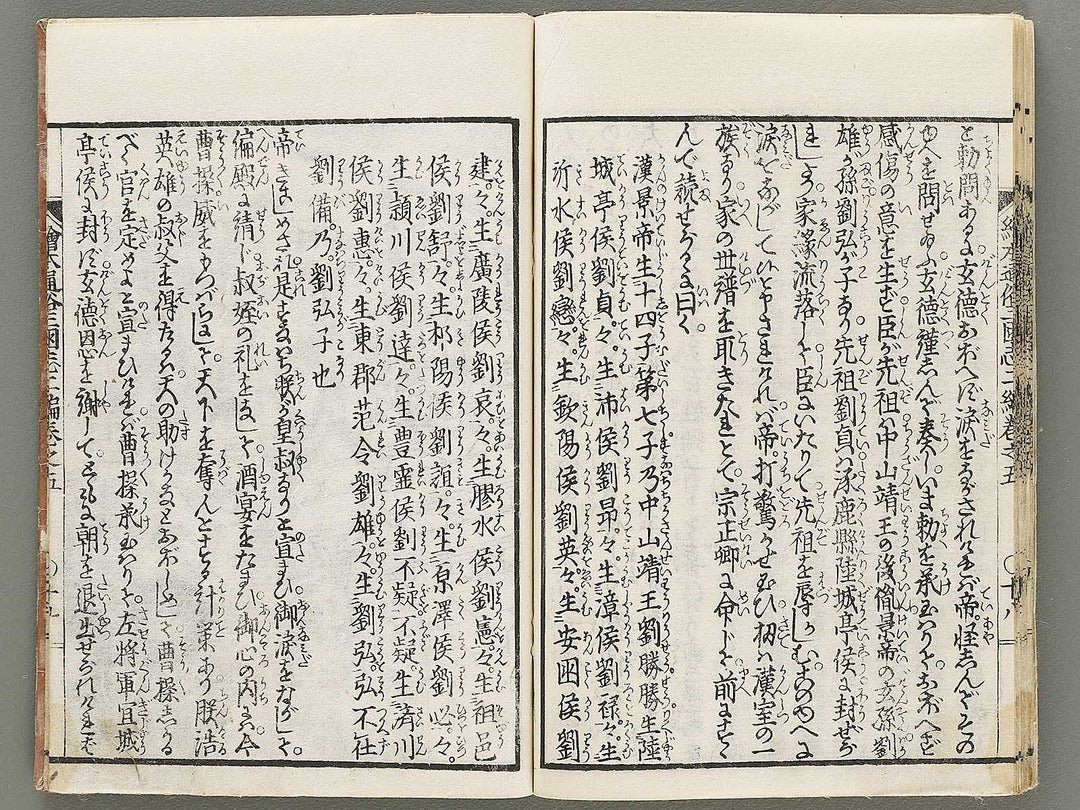 と勅問あるに玄徳おぼへず涙をながされければ帝怪しんでその
ゆへを問せ玉ふ玄徳謹しんで奏しいま勅を承玉はりておぼへず
感傷の意を生ず臣が先祖は中山靖王の後胤景帝の玄孫劉
雄が孫劉弘が子なり先祖劉貞は涿鹿縣陸城亭侯に封ぜら
れしより家縁流落し今臣にいたりて先祖を辱しむるのゆへに
涙をながして候とやされければ帝打驚かせ玉ひ扨は漢室の一
族なり家の世譜を取きたれとて宗正卿に命じて前にすゝ
んで読せらるゝに曰く
漢景帝生十四子第七子乃中山靖王劉勝勝生陸
城亭侯劉貞々生沛侯劉昂々生漳侯劉禄々生
沂水侯劉戀々生欽陽侯劉英々生安囯侯劉
建々生廣陵侯劉哀々生膠水侯劉憲々生祖邑
侯劉舒々生祁陽侯劉誼々生原澤侯劉必々
生潁川侯劉達々生豊靈侯劉不疑不疑生済川
侯劉惠々生東郡范令劉雄々生劉弘弘不仕
劉備乃劉弘子也
帝きこしめされ是すなはち朕が皇叔なりと宣まひ御涙をながして
偏殿に請じ叔姪の礼をなして酒宴をたまひ御心の内には今
曹操威をもつはらにして天下を奪んとするの計策あり朕浩
英雄の叔父を得たるは天の助けなりとおぼしめして曹操しかる
べく官を定めよと宣まひければ曹操承玉はりて左将軍宜城
亭侯に封ず玄徳恩を謝してともに朝を退出せられければ
繪本通俗三国志二編巻之五
〇十八
繪本通俗三国志二編巻之五
〇十九